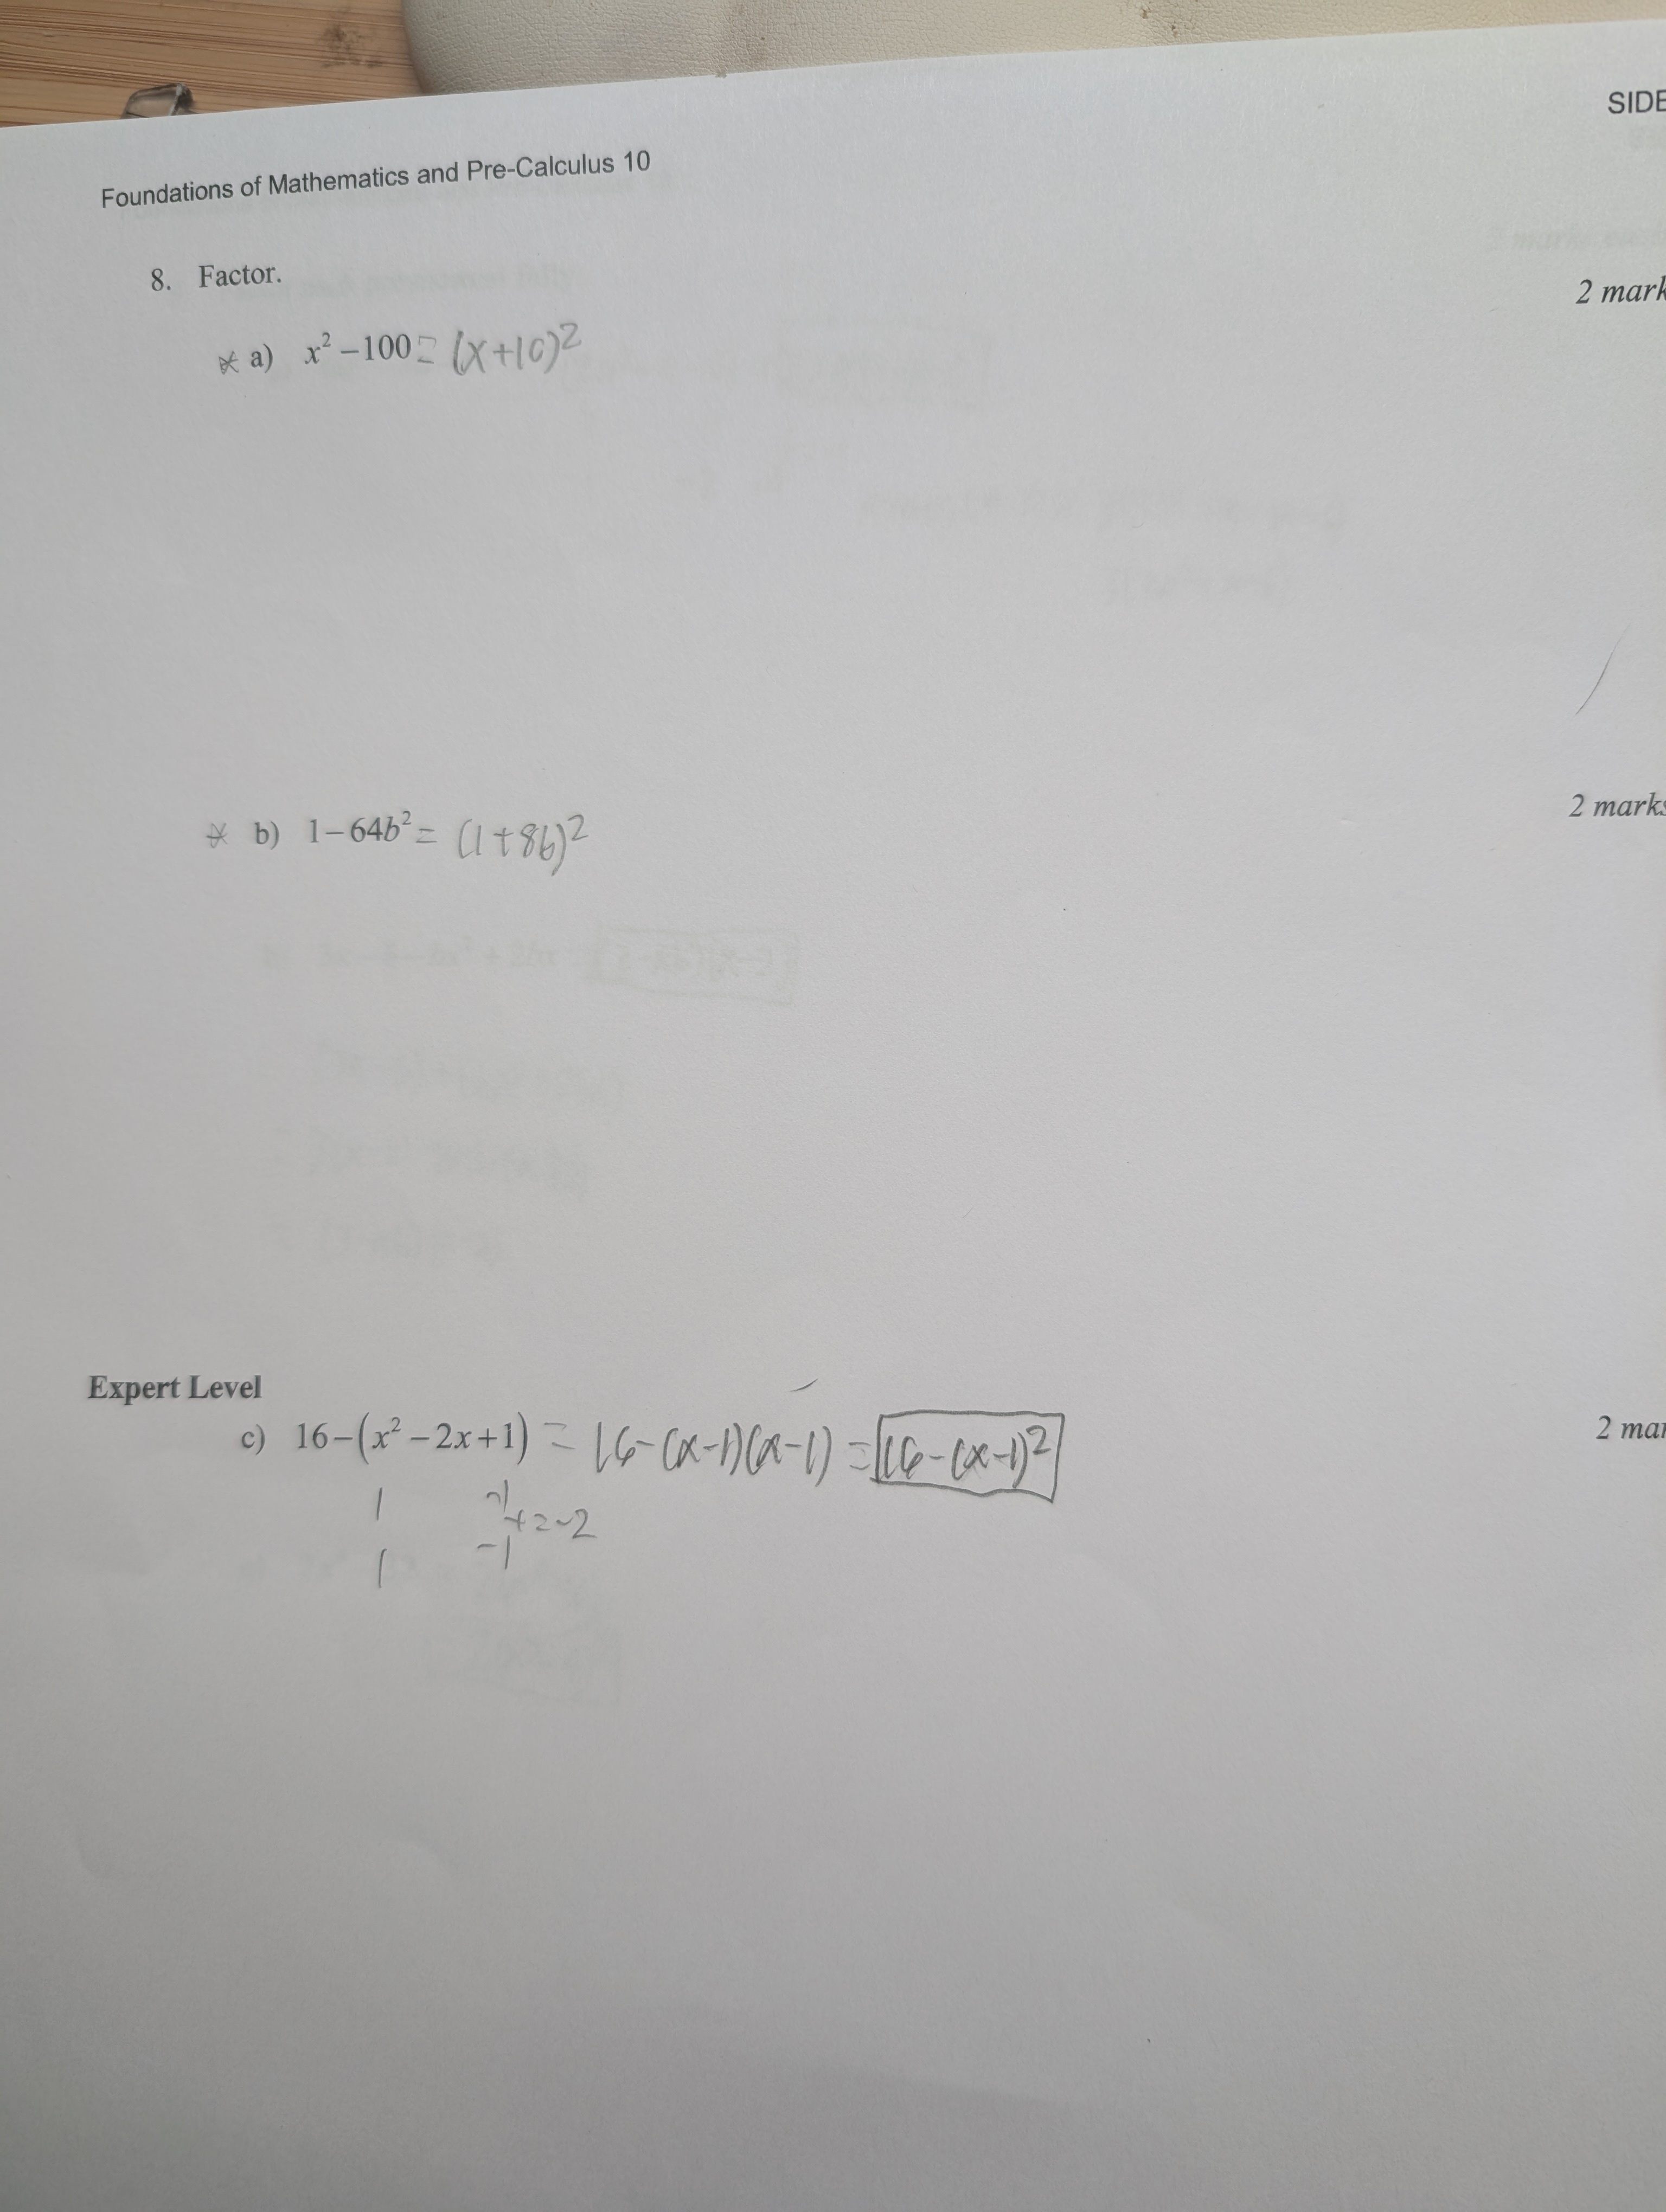 SIDE
Foundations of Mathematics and Pre-Calculus 10
8. Factor.
2 mark
* a) x² – 100 = (x+10)²
2 marks
* b) 1 – 64b² = (1+8b)²
Expert Level
c) 16 – (x² – 2x + 1) = 16-(x-1)(x-1) = 16-(x-1)²
2 mar
1 -1
+=-2
1 -1